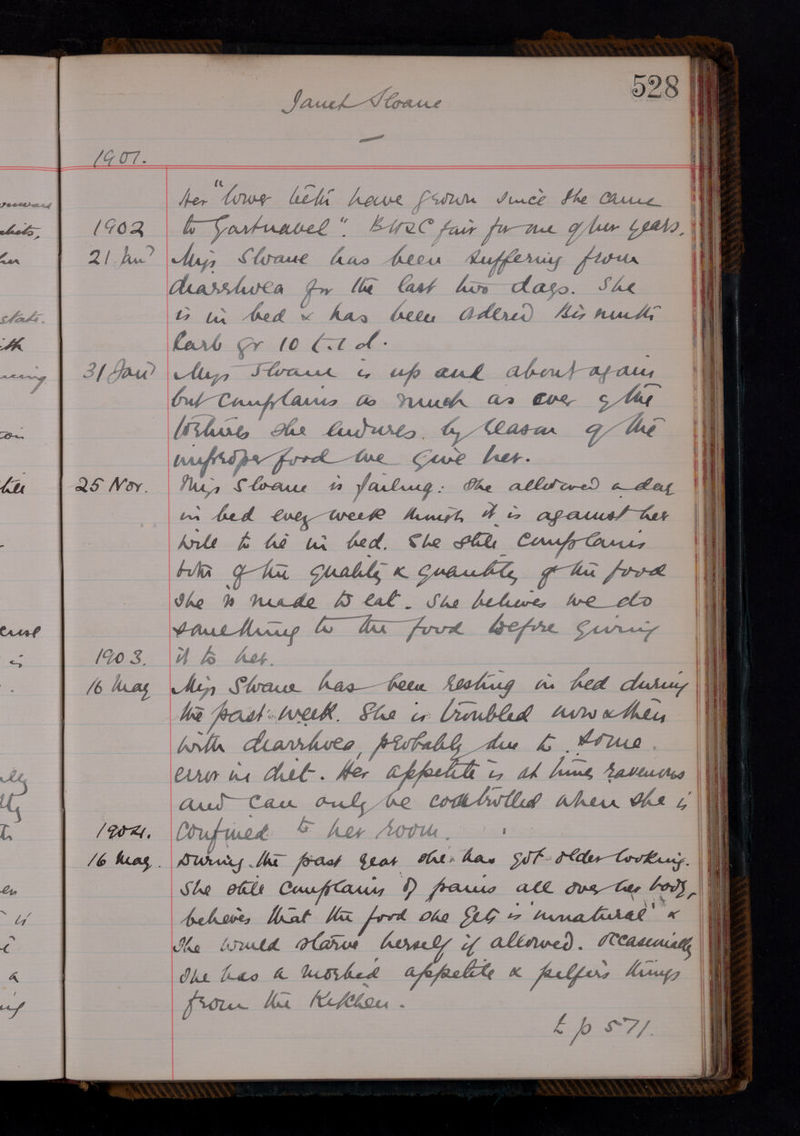 528
Janet Sloane
1901.
Her "lower teeth have grown since she came
1902 to Gartnavel". B H & C fair for one of her years.
21 Jan? Miss Sloane has been suffering from
diarrhoea for the last two days. She
is in bed & has been ordered Bismuth
Carb gr 10 t.i.d.
31 Jan? Miss Sloane is up and about again
but complains as much as ever of the
tortures she endures by reason of the
improper food we give her.
25 Nov. Miss Sloane is failing: She allowed a day
in bed every week though it is against her
will to lie in bed. She still complains
both of the quality & quantity of the food
she is made to eat. She believes we do
something to the food before giving
1903. it to her.
16 May Miss Sloane has been resting in bed during
the past week. She is troubled now & then
with diarrhoea, probably due to some
error in diet. Her appetite is at times ravenous
and can only be controlled when she is
1904. confined to her room.
16 May. During the past year she has got older looking.
She still complains of pains all over her body,
believes that the food she gets is 'unnatural' &
She would starve herself if allowed. Occasionally
she has a morbid appetite & pilfers things
from the Kitchen.
t p 571.